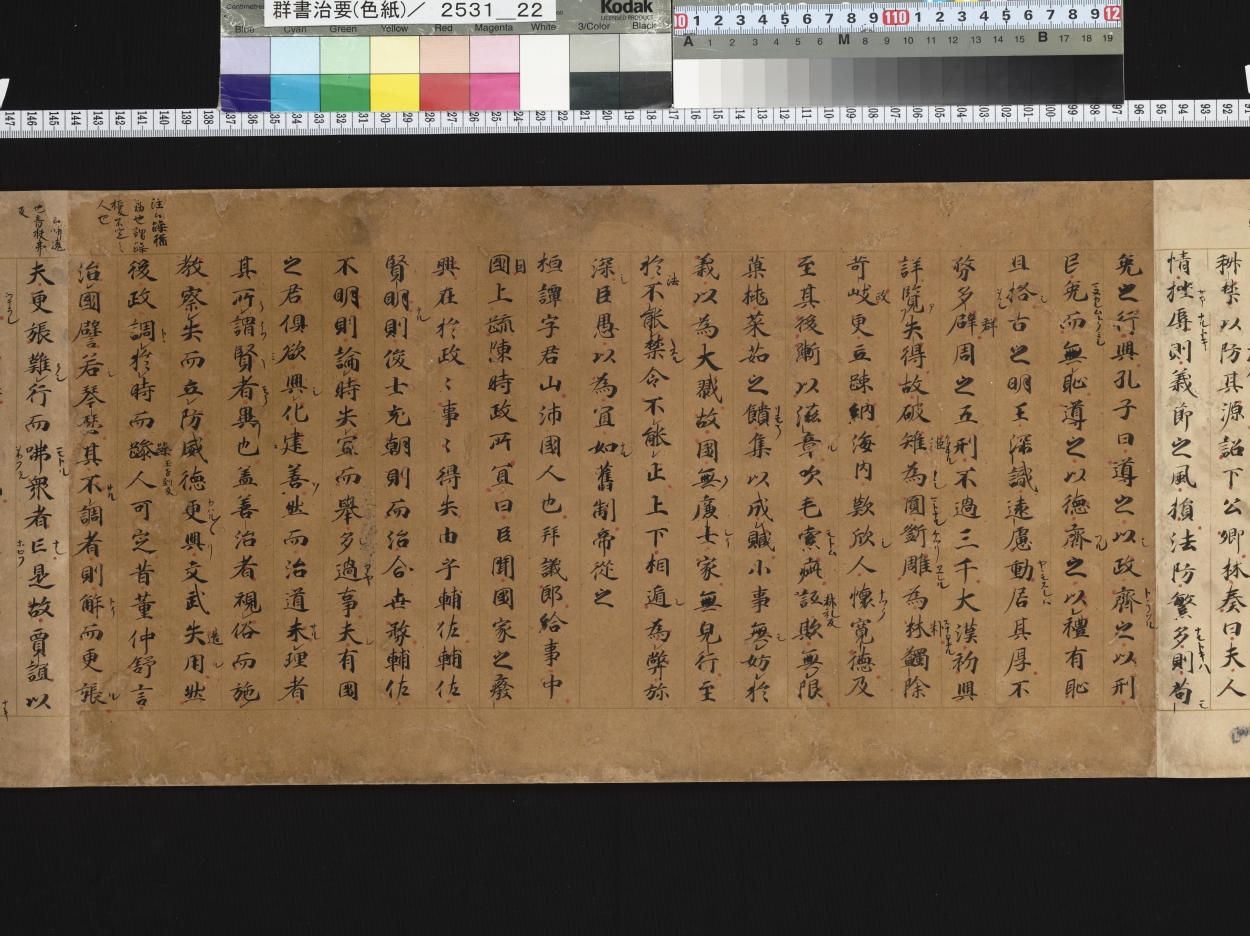 群書治要(色紙)／ 2531__22
Kodak
LICENSED PRODUCT
Blue Cyan Green Yellow Red Magenta White 3/Color Black
科禁以防其源詔下公卿林奏曰夫人
情挫辱則義節之風損法防繁多則苟
免之行興孔子曰導之以政齊之以刑
民免而無恥導之以德齊之以禮有恥
且格古之明王深識遠慮動居其厚不
務多辟周之五刑不過三千大漢初興
詳覽失得故破雉為圓斲雕為林蠲除
苛政更立踈網海內歡欣人懷寬德及
至其後漸以滋章吹毛索疵詆欺無限
菓桃菜茹之饋集以成贓小事無妨於
義以為大戮故國無廉士家無皃行至
於不能禁令不能止上下相遁為弊弥
深臣愚以為宜如舊制帝從之
桓譚字君山沛國人也拜議郎給事中
國上疏陳時政所宜曰臣聞國家之廢
興在於政〻事〻得失由乎輔佐輔佐
賢明則俊士充朝則而治合世務輔佐
不明則論時失宜而舉多過事夫有國
之君俱欲興化建善然而治道未理者
其所謂賢者異也盖善治者視俗而施
教察失而立防威德更興文武失用然
後政調於時而躁人可定昔董仲舒言
治國譬若琴瑟其不調者則解而更張
夫更張難行而咈衆者亡是故賈誼以